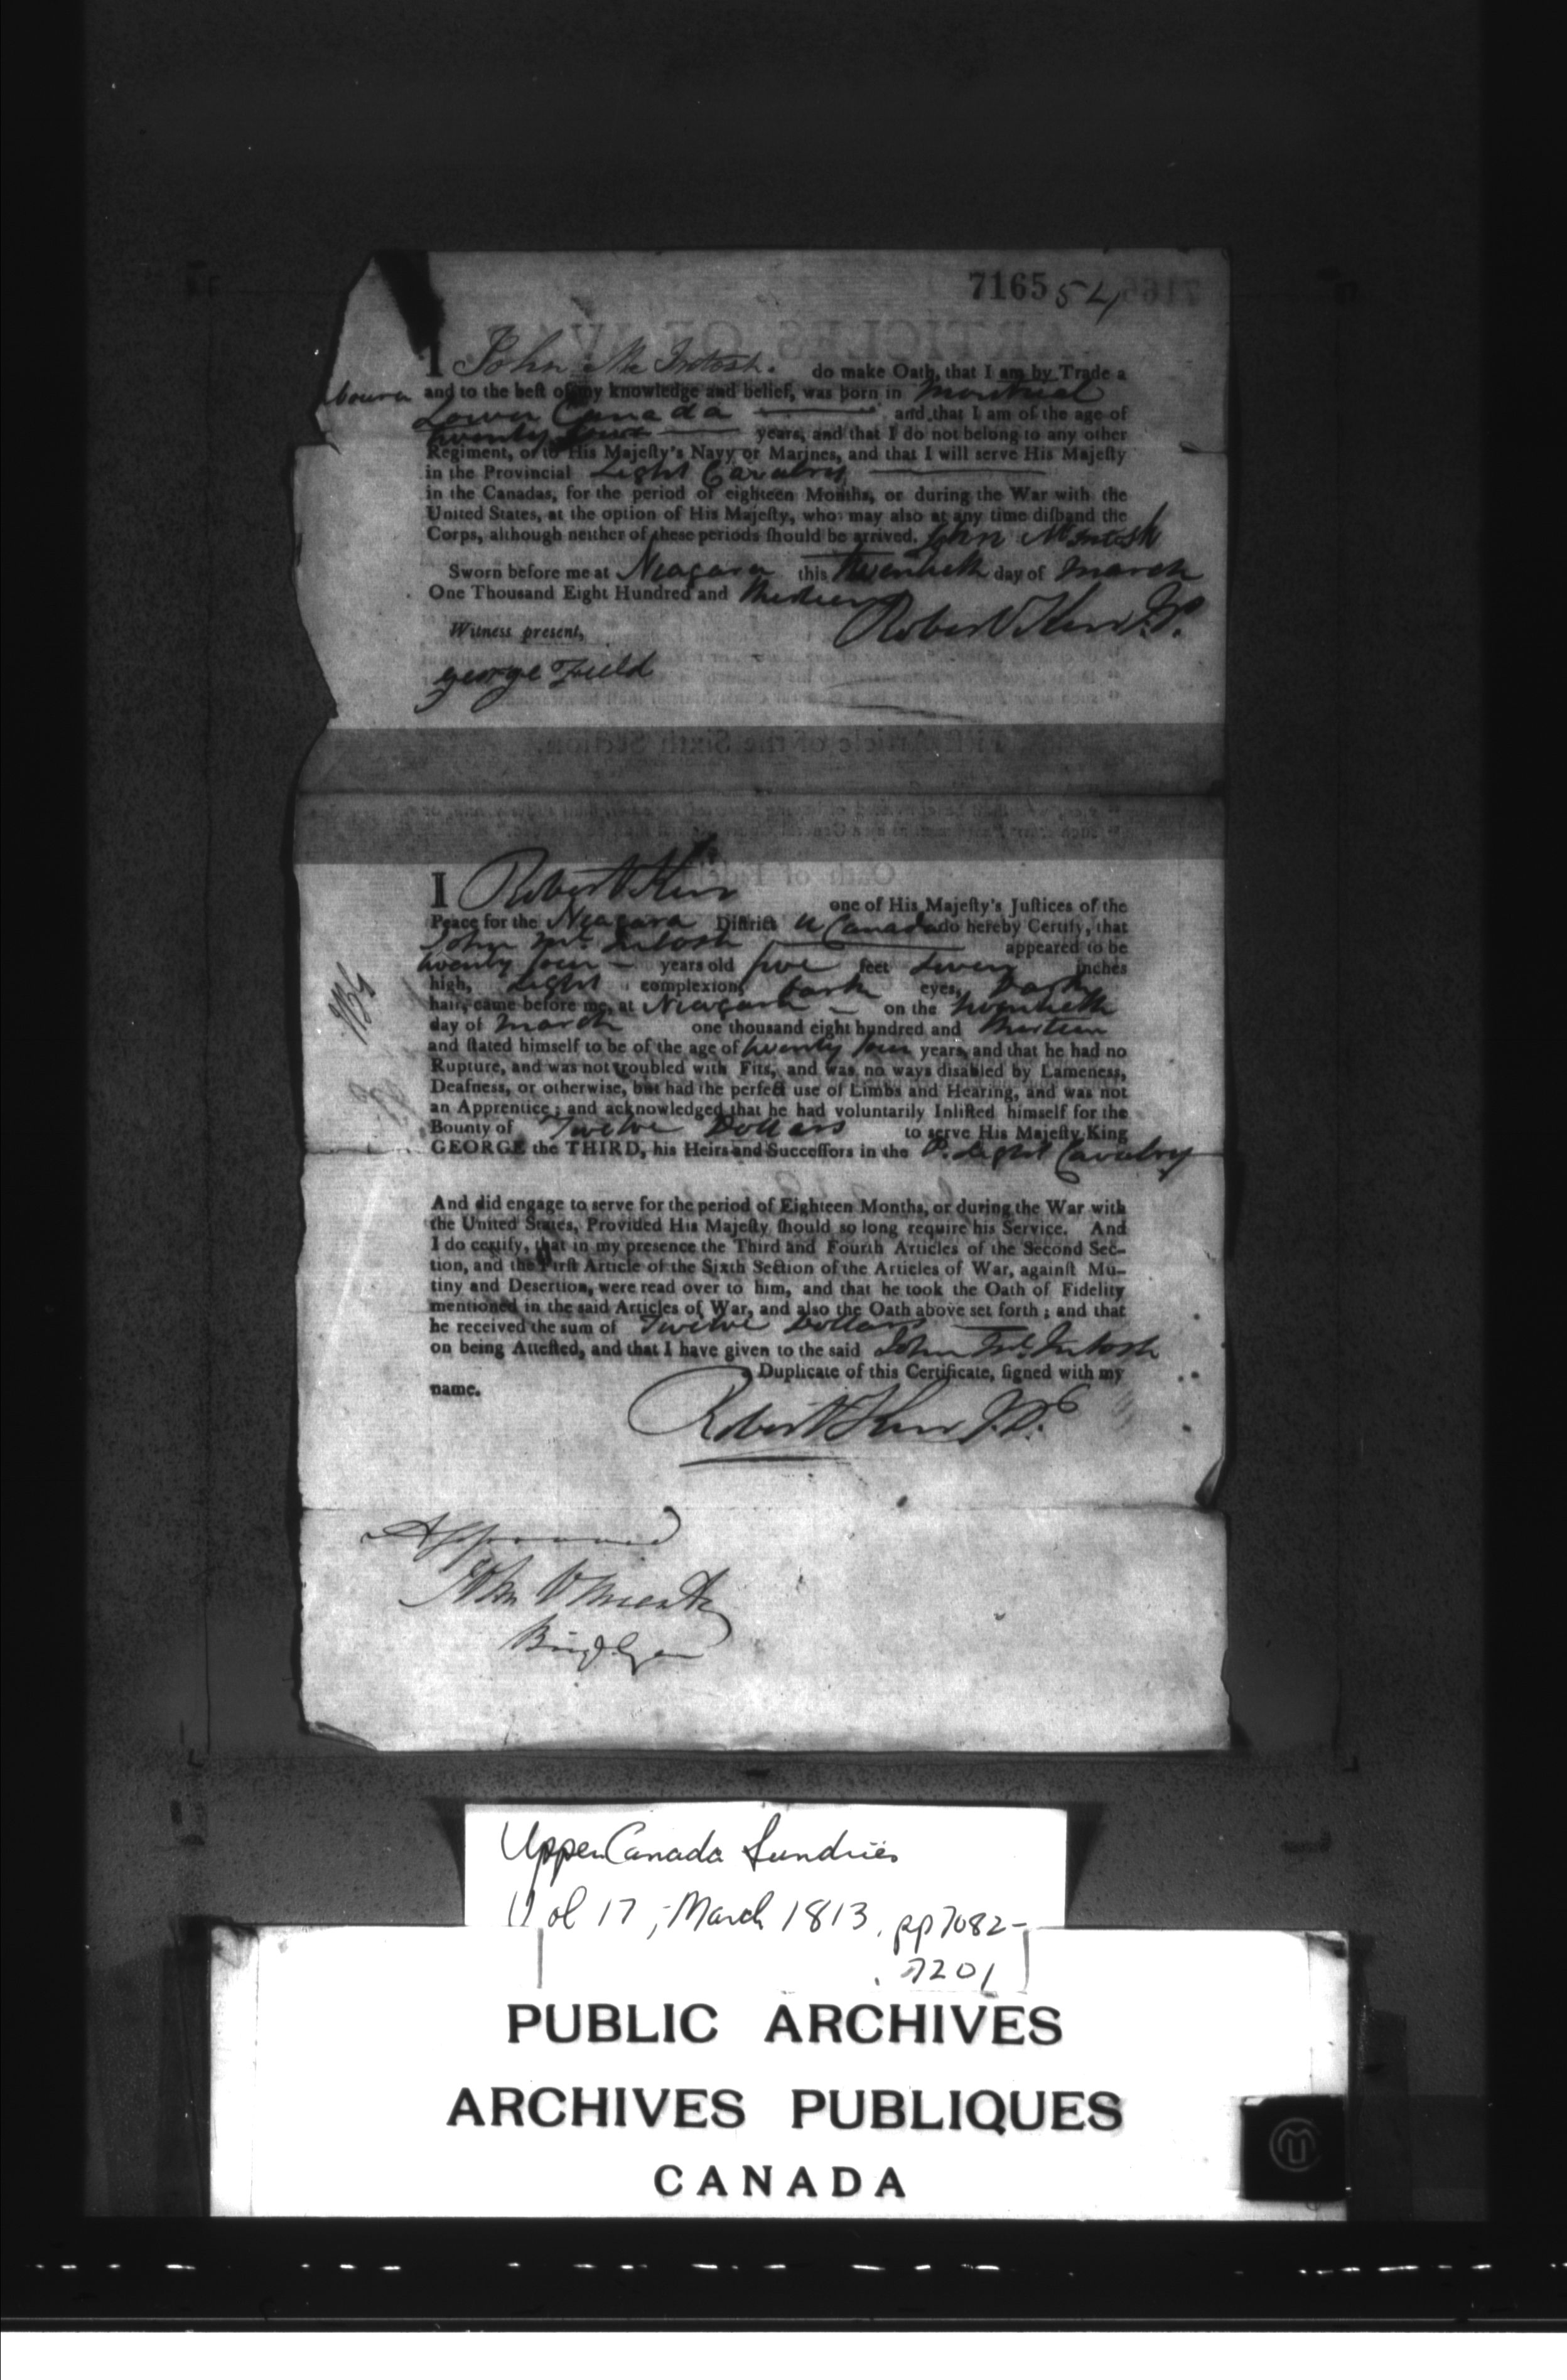 7165 54
I John Mc Intosh. do make Oath, that I am by Trade a
and to the beſt of my knowledge and belief, was born in Montreal
Lower Canada and that I am of the age of
twenty four years, and that I do not belong to any other
Regiment, or to His Majeſty's Navy or Marines, and that I will serve His Majeſty
in the Provincial Light Cavalry
in the Canadas, for the period of eighteen Months, or during the War with the
United States, at the option of His Majeſty, who may also at any time diſband the
Corps, although neither of theſe periods ſhould be arrived. John McIntosh
Sworn before me at Niagara this twentieth day of March
One Thousand Eight Hundred and thirteen
Robert Kerr J.P.
Witness present,
george Field
Firſt Article of the Sixth Section.
I Robert Kerr one of His Majeſty's Juſtices of the
Peace for the Niagara Diſtrict U Canada do hereby Certify, that
John Mc Intosh appeared to be
twenty four years old five feet seven inches
high, Light complexion, dark eyes, Dark
hair, came before me, at Niagara on the twentieth
day of March one thousand eight hundred and thirteen
and ſtated himself to be of the age of twenty four years, and that he had no
Rupture, and was not troubled with Fits, and was no ways disabled by Lameness,
Deafness, or otherwise, but had the perfect use of Limbs and Hearing, and was not
an Apprentice; and acknowledged that he had voluntarily Inliſted himself for the
Bounty of Twelve Dollars to serve His Majeſty King
GEORGE the THIRD, his Heirs and Succeſſors in the P. Light Cavalry
And did engage to serve for the period of Eighteen Months, or during the War with
the United States, Provided His Majeſty ſhould so long require his Service. And
I do certify, that in my presence the Third and Fourth Articles of the Second Sec-
tion, and the Firſt Article of the Sixth Section of the Articles of War, againſt Mu-
tiny and Desertion, were read over to him, and that he took the Oath of Fidelity
mentioned in the said Articles of War, and also the Oath above set forth; and that
he received the sum of Twelve Dollars
on being Atteſted, and that I have given to the said John Mc Intosh
Duplicate of this Certificate, ſigned with my
name.
Robert Kerr J.P.
Approved
John Vincent
Brig Gen
Upper Canada Sundries
Vol 17, March 1813, pp 7082-
7201
PUBLIC ARCHIVES
ARCHIVES PUBLIQUES
CANADA